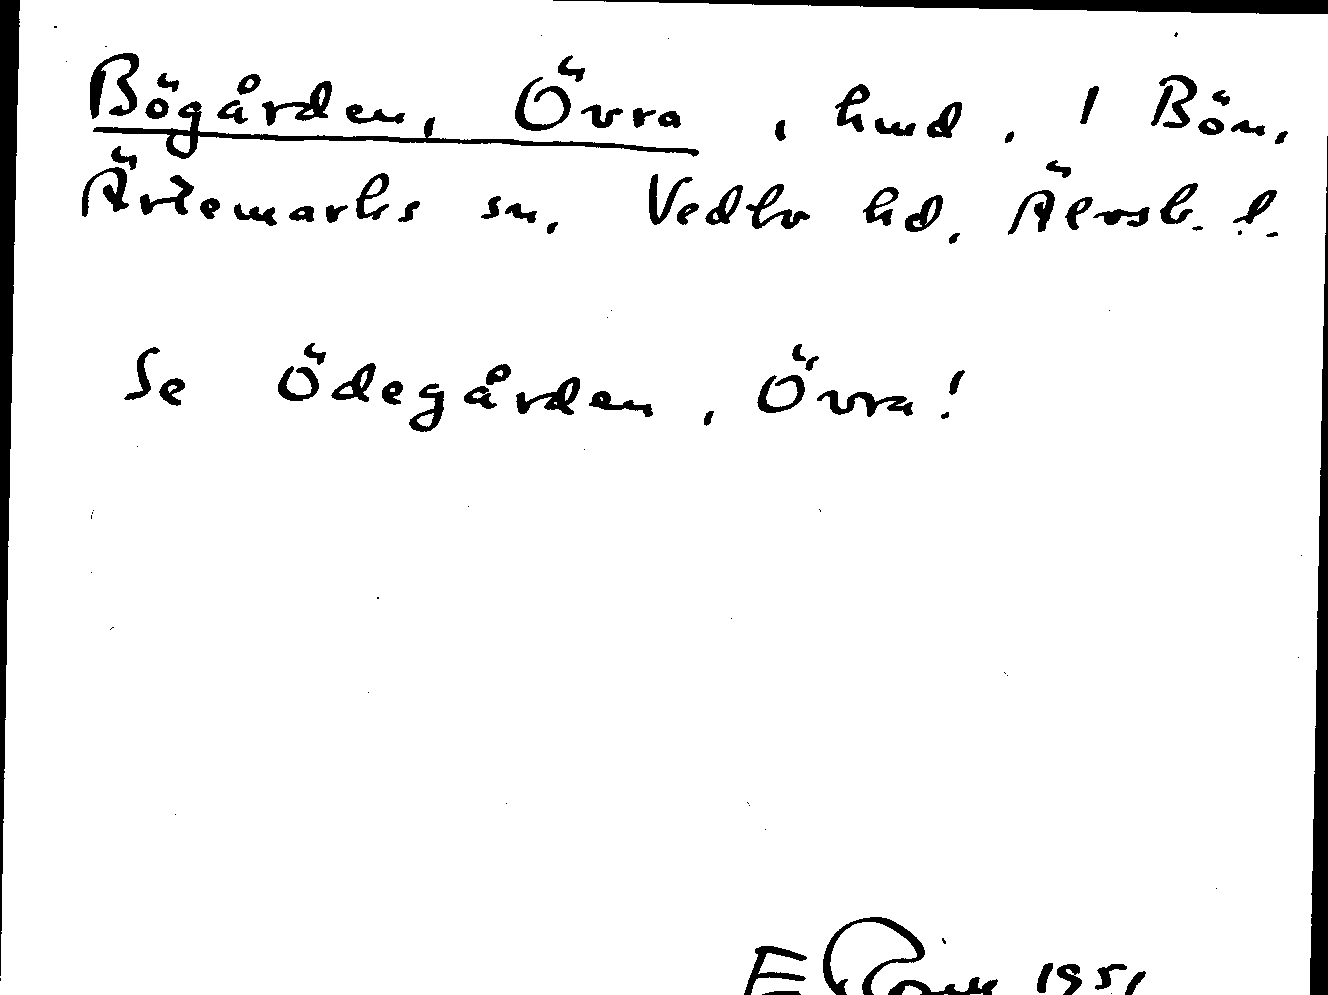 Bögården, Övra, hmd. 1 Bön,
Ärtemarks sn, Vedbo hd, Älvsb. l.
Se Ödegården, Övra!
1951